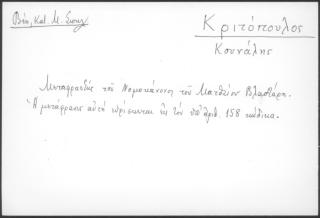 Βέη, Κατ. Μ. Σουμ.
Κριτόπουλος
Κουνάλης
Μεταφραστὴς τοῦ Νομοκάνονος τοῦ Ματθαίου Βλαστάρη.
Ἡ μετάφρασις αὐτὴ εὑρίσκεται εἰς τὸν ὑπ' ἀριθ. 158 κώδικα.